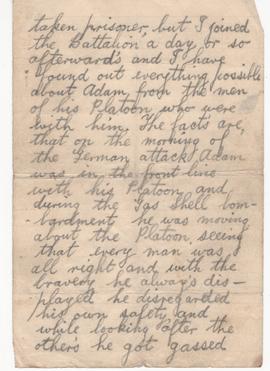 taken prisoner, but I joined
the Battalion a day or so
afterwards and I have
found out everything possible
about Adam, from the men
of his Platoon who were
with him. The facts are,
that on the morning of
the German attack Adam
was in the front line
with his Platoon, and
during the Gas Shell bom-
bardment he was moving
about the Platoon, seeing
that every man was
all right, and with the
bravery he always dis-
played he disregarded
his own safety and
while looking after the
others he got gassed